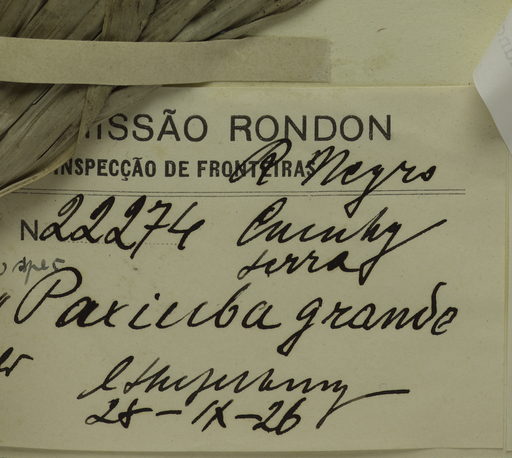 MISSÃO RONDON
INSPECÇÃO DE FRONTEIRAS R. Negro
N 22274 Cucuhy
serra
Paxiuba grande
28-IX-26